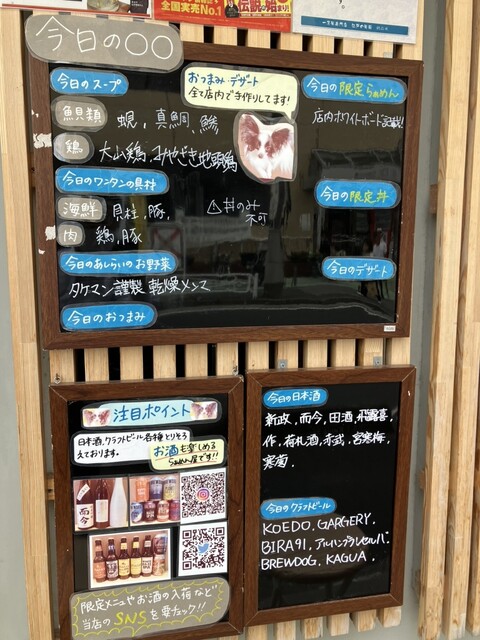 全国実売No.1
今日の〇〇
今日のスープ
魚貝類
蜆、真鯛、鯵
鶏
大山鶏、みやざき地頭鶏
今日のワンタンの具材
海鮮
貝柱、豚、
肉
鶏、豚
今日のあしらいのお野菜
タケマン謹製 乾燥メンマ
今日のおつまみ
おつまみ・デザート
全て店内で手作りしてます!
今日の限定らぁめん
店内ホワイトボード記載!
⚠丼のみ
不可
今日の限定丼
今日のデザート
注目ポイント
日本酒、クラフトビール各種とりそろ
えております。
お酒も楽しめる
らぁめん屋です!!
而今
限定メニューやお酒の入荷など
当店のSNSを要チェック!!
今日の日本酒
新政、而今、田酒、飛露喜、
作、荷札酒、赤武、宮寒梅、
寒菊、
今日のクラフトビール
KOEDO、GARGERY、
BIRA91、アルハンブラレセルバ、
BREWDOG、KAGUA、